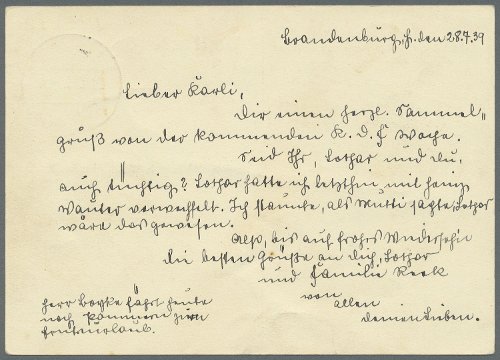 Brandenburg, H. den 28.7.39
Lieber Karli,
Dir einen herzl. Sammel-
gruß von der kommenden K. d. F Woche.
Seid Ihr, Lothar und du,
auch tüchtig? Lothar hatte ich letzthin mit
verwechselt. Ich staunte, als Mutti sagte, Lothar
wäre das gewesen.
Also, bis auf frohes Wiedersehn
die besten Grüße an dich, Lothar
und Familie Reek
von
allen
deinen Lieben.
Herr Boyke fährt heute
nach Pommern zum
Ernteurlaub.